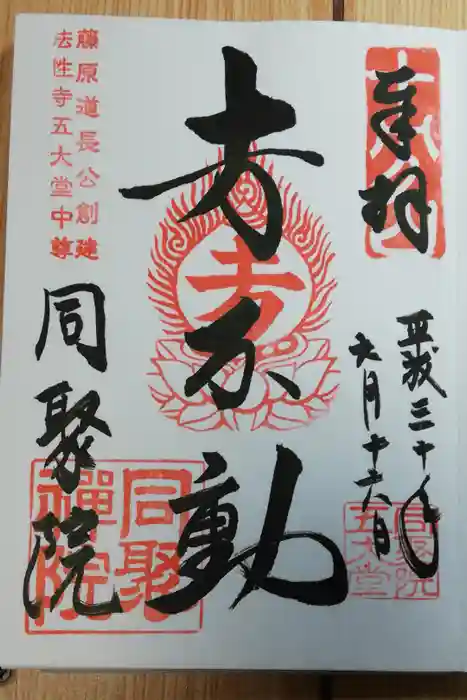 奉拝
平成三十年
六月十六日
同聚院
五大堂
十万不動
藤原道長公創建
法性寺五大堂中尊
同聚院
同聚
禪院